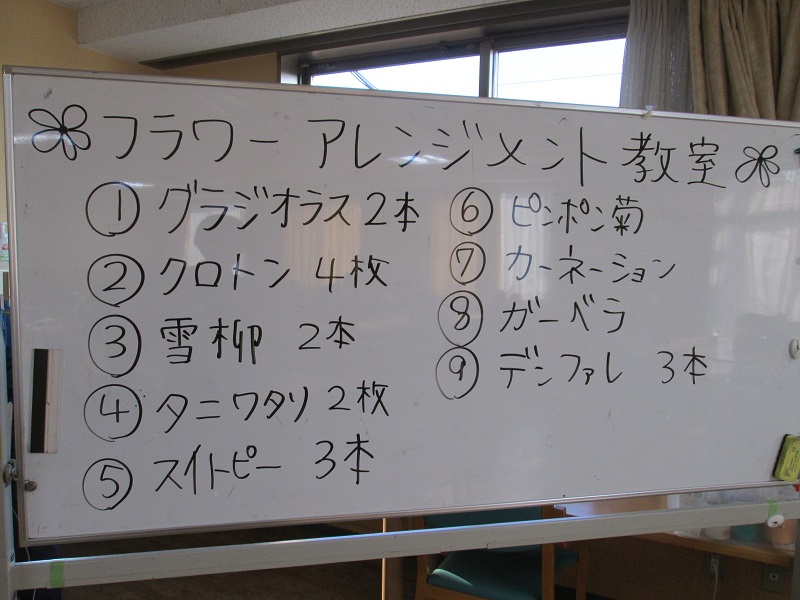 フラワーアレンジメント教室
① グラジオラス 2本
② クロトン 4枚
③ 雪柳 2本
④ タニワタリ 2枚
⑤ スイトピー 3本
⑥ ピンポン菊
⑦ カーネーション
⑧ ガーベラ
⑨ デンファレ 3本